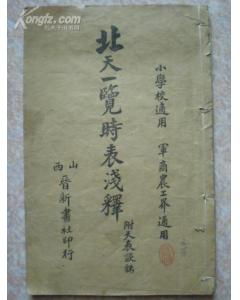 小學校適用　軍商農工界通用
北天一覽時表淺釋
附天表談話
山西
晉新書社印行